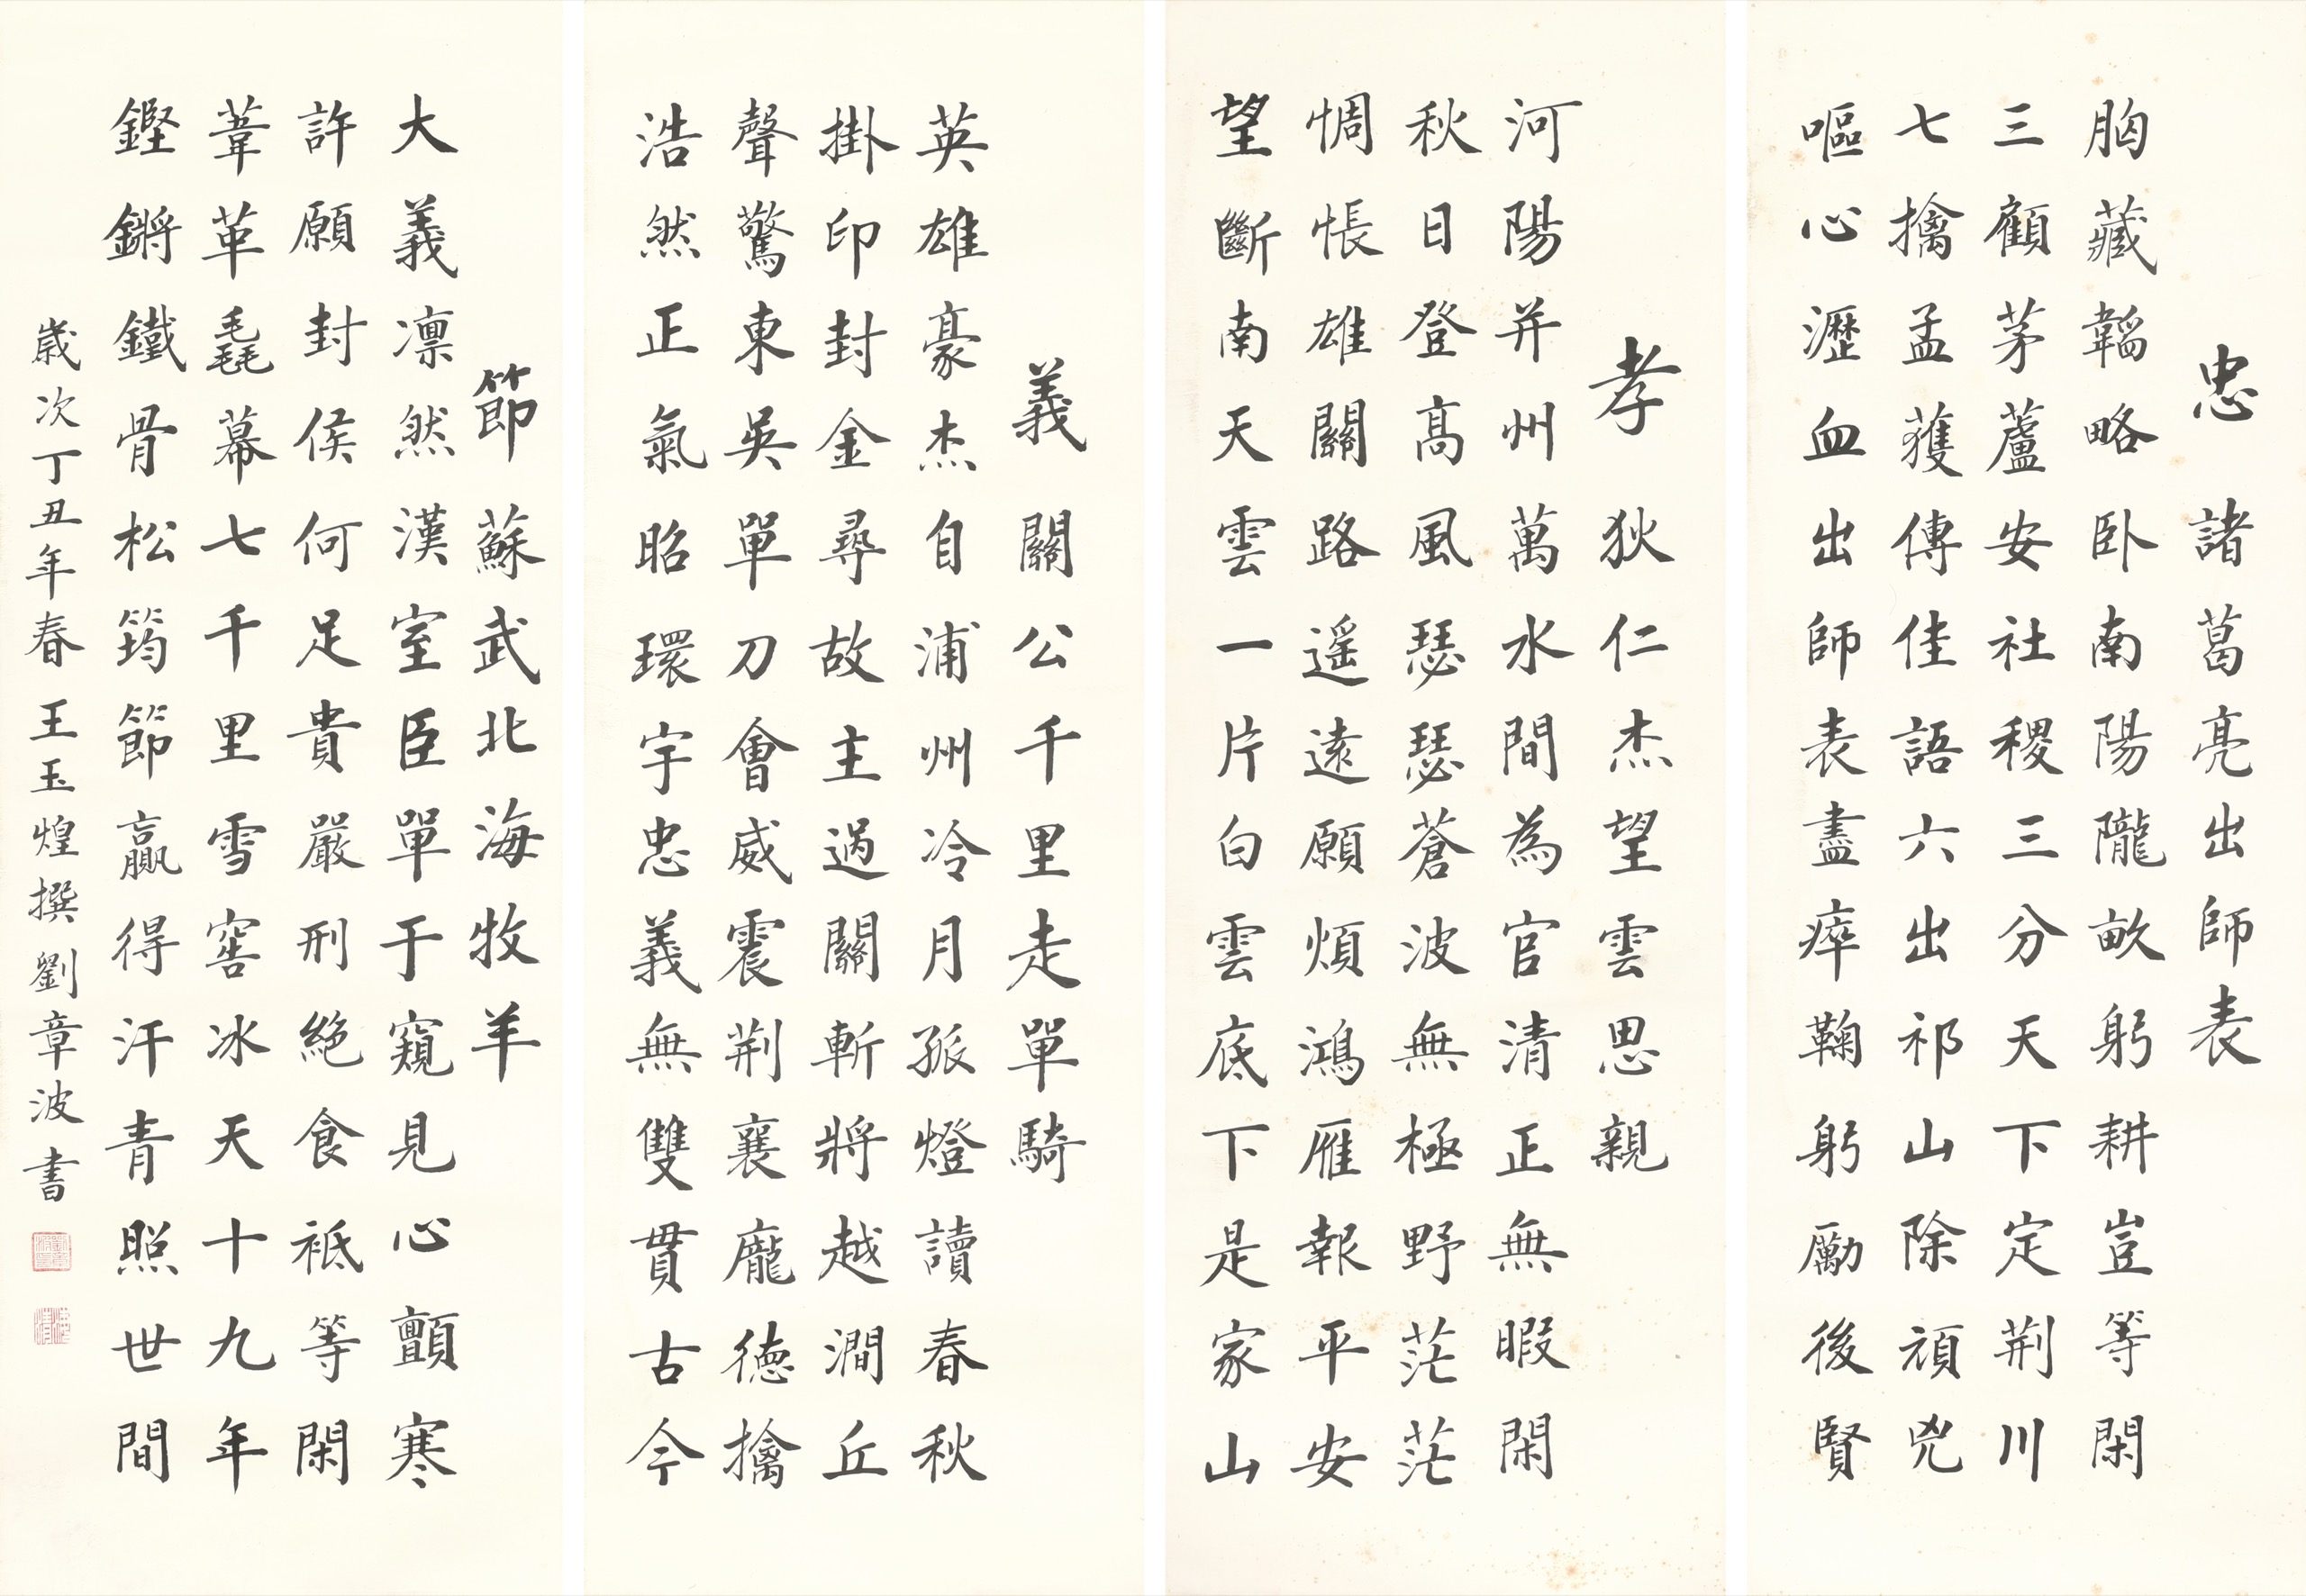 忠 諸葛亮出師表
胸藏韜略卧南陽隴畝躬耕豈等閑
三顧茅蘆安社稷三分天下定荆川
七擒孟獲傳佳語六出祁山除頑兇
嘔心瀝血出師表盡瘁鞠躬勵後賢
孝 狄仁杰望雲思親
河陽并州萬水間為官清正無暇閑
秋日登高風瑟瑟蒼波無極野茫茫
惆悵雄關路遥遠願煩鴻雁報平安
望斷南天雲一片白雲底下是家山
義 關公千里走單騎
英雄豪杰自浦州冷月孤燈讀春秋
掛印封金尋故主過關斬將越澗丘
聲驚東吳單刀會威震荆襄龐德擒
浩然正氣昭環宇忠義無雙貫古今
節 蘇武北海牧羊
大義凛然漢室臣單于窺見心顫寒
許願封侯何足貴嚴刑絶食祗等閑
葦革毳幕七千里雪窖冰天十九年
鏗鏘鐵骨松筠節贏得汗青照世間
歲次丁丑年春王玉煌撰劉章波書